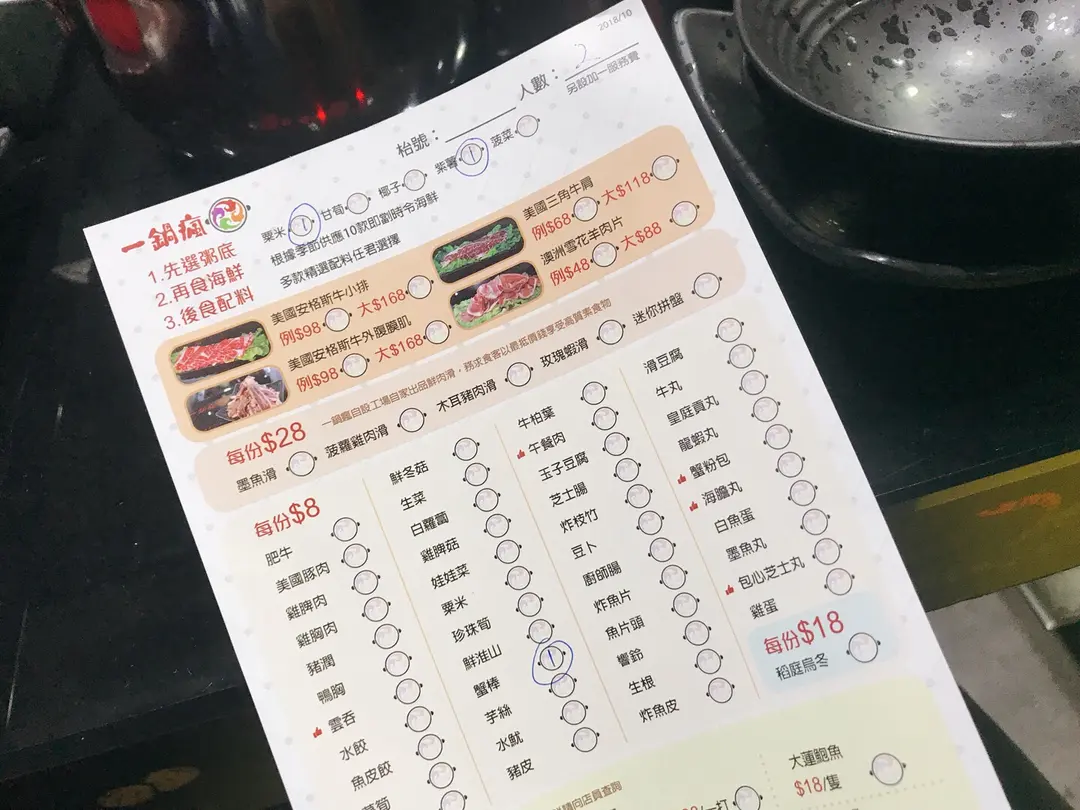 2018/10
人數：2
另設加一服務費
枱號：
一鍋瘋
粟米 1 甘荀 椰子 紫薯 1 菠菜
根據季節供應10款即劏時令海鮮
多款精選配料任君選擇
1.先選粥底
2.再食海鮮
3.後食配料
美國安格斯牛小排
例$98 大$168
美國安格斯牛外腹膜肌
例$98 大$168
美國三角牛肩
例$68 大$118
澳洲雪花羊肉片
例$48 大$88
每份$28
一鍋瘋自設工場自家出品鮮肉滑，務求食客以最抵價錢享受高質素食物
墨魚滑 菠蘿雞肉滑 木耳豬肉滑 玫瑰蝦滑 迷你拼盤
每份$8
肥牛
美國豚肉
雞脾肉
雞胸肉
豬潤
鴨胸
雲吞
水餃
魚皮餃
鮮冬菇
生菜
白蘿蔔
雞脾菇
娃娃菜
粟米
珍珠筍
鮮淮山 1
蟹棒
芋絲
水魷
豬皮
牛柏葉
午餐肉
玉子豆腐
芝士腸
炸枝竹
豆卜
廚師腸
炸魚片
魚片頭
響鈴
生根
炸魚皮
滑豆腐
牛丸
皇庭貢丸
龍蝦丸
蟹粉包
海膽丸
白魚蛋
墨魚丸
包心芝士丸
雞蛋
每份$18
稻庭烏冬
大蓮鮑魚
$18/隻
請向店員查詢
/一打